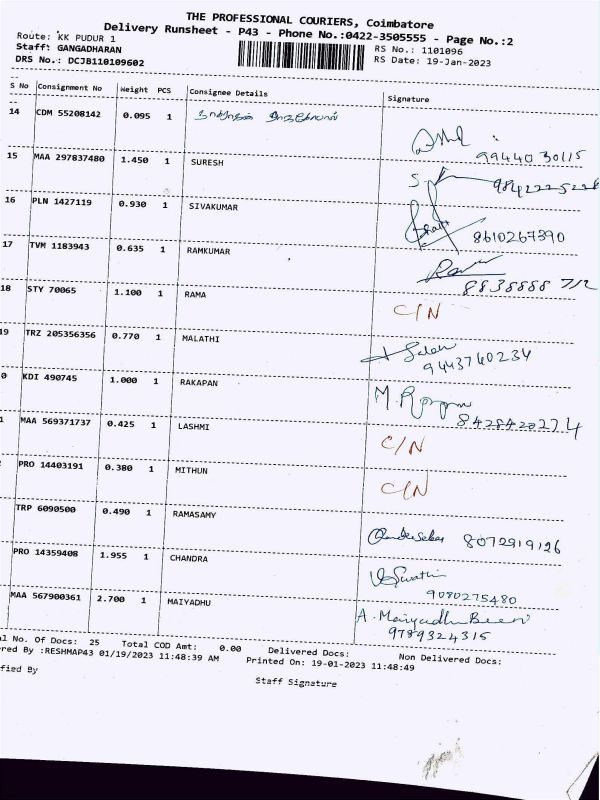 THE PROFESSIONAL COURIERS, Coimbatore
Delivery Runsheet - P43 - Phone No.:0422-3505555 - Page No.:2
Route: KK PUDUR 1
Staff: GANGADHARAN
DRS No.: DCJB110109602
RS No.: 1101096
RS Date: 19-Jan-2023
S No Consignment No Weight PCS Consignee Details Signature
14 CDM 55208142 0.095 1
9944030115
15 MAA 297837480 1.450 1 SURESH
16 PLN 1427119 0.930 1 SIVAKUMAR
8610267390
17 TVM 1183943 0.635 1 RAMKUMAR
8838888 712
18 STY 70065 1.100 1 RAMA C/N
19 TRZ 205356356 0.770 1 MALATHI
9443740234
0 KDI 490745 1.000 1 RAKAPAN
8428420274
1 MAA 569371737 0.425 1 LASHMI C/N
PRO 14403191 0.380 1 MITHUN C/N
TRP 6090500 0.490 1 RAMASAMY 8072919126
PRO 14359408 1.955 1 CHANDRA
9080275480
MAA 567900361 2.700 1 MAIYADHU A. Maiyadhu Beevi
9789324315
al No. Of Docs: 25 Total COD Amt: 0.00 Delivered Docs: Non Delivered Docs:
red By :RESHMAP43 01/19/2023 11:48:39 AM Printed On: 19-01-2023 11:48:49
fied By Staff Signature